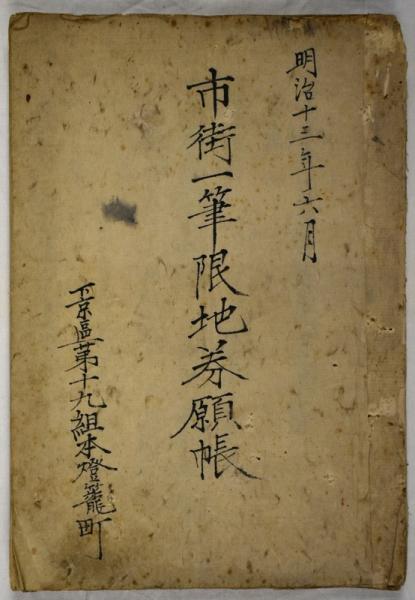 明治十三年六月
市街一筆限地券願帳
下京區第十九組本燈籠町